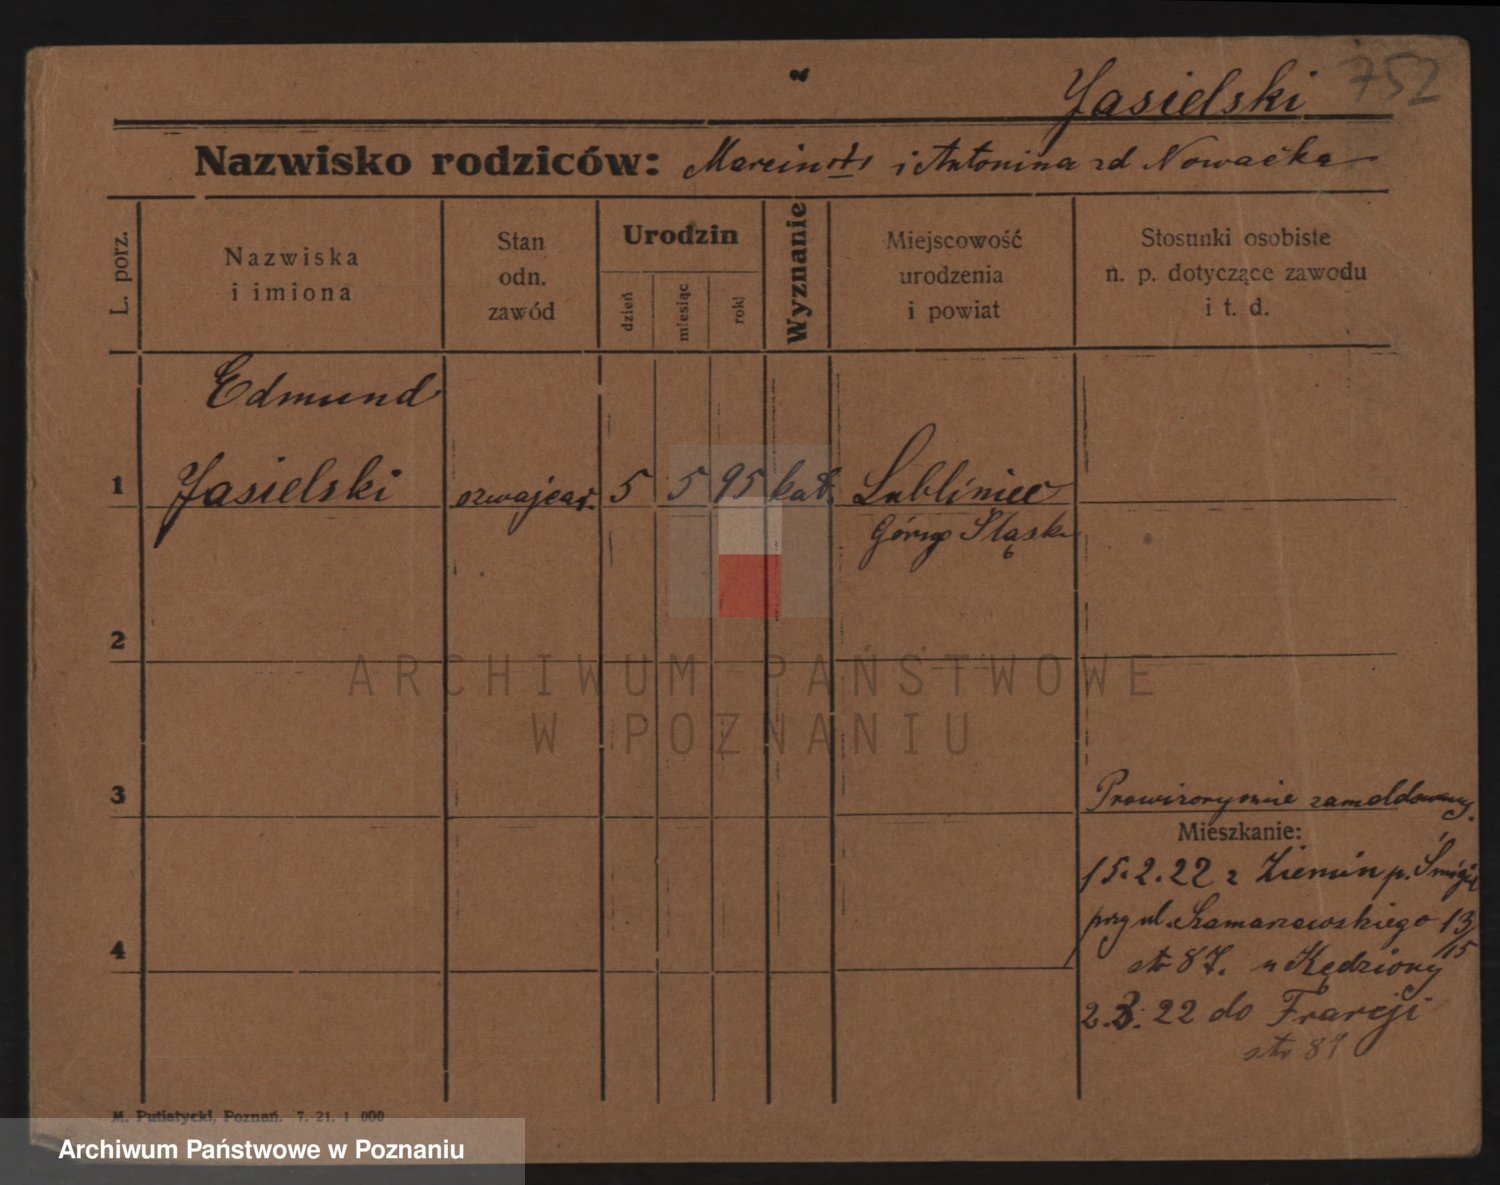 752
Jasielski
Nazwisko rodziców: Marcin i Antonina zd Nowacka
L. porz.
Nazwiska
i imiona
Stan
odn.
zawód
Urodzin
dzień
miesiąc
rok
Wyznanie
Miejscowość
urodzenia
i powiat
Stosunki osobiste
n. p. dotyczące zawodu
i t. d.
Edmund
1 Jasielski szwajcar. 5 5 95 kat. Lubliniec
Górny Śląsk
2
ARCHIWUM PAŃSTWOWE
W POZNANIU
3
Prowizorycznie zameldowany.
Mieszkanie:
15.2.22 z Ziemin p. Śmigiel
przy ul. Szamarzewskiego 13/15
4
str 87. u Kędziory
2.3.22 do Francji
str 87
M. Putiatycki, Poznań. 7. 21. 1 000
Archiwum Państwowe w Poznaniu